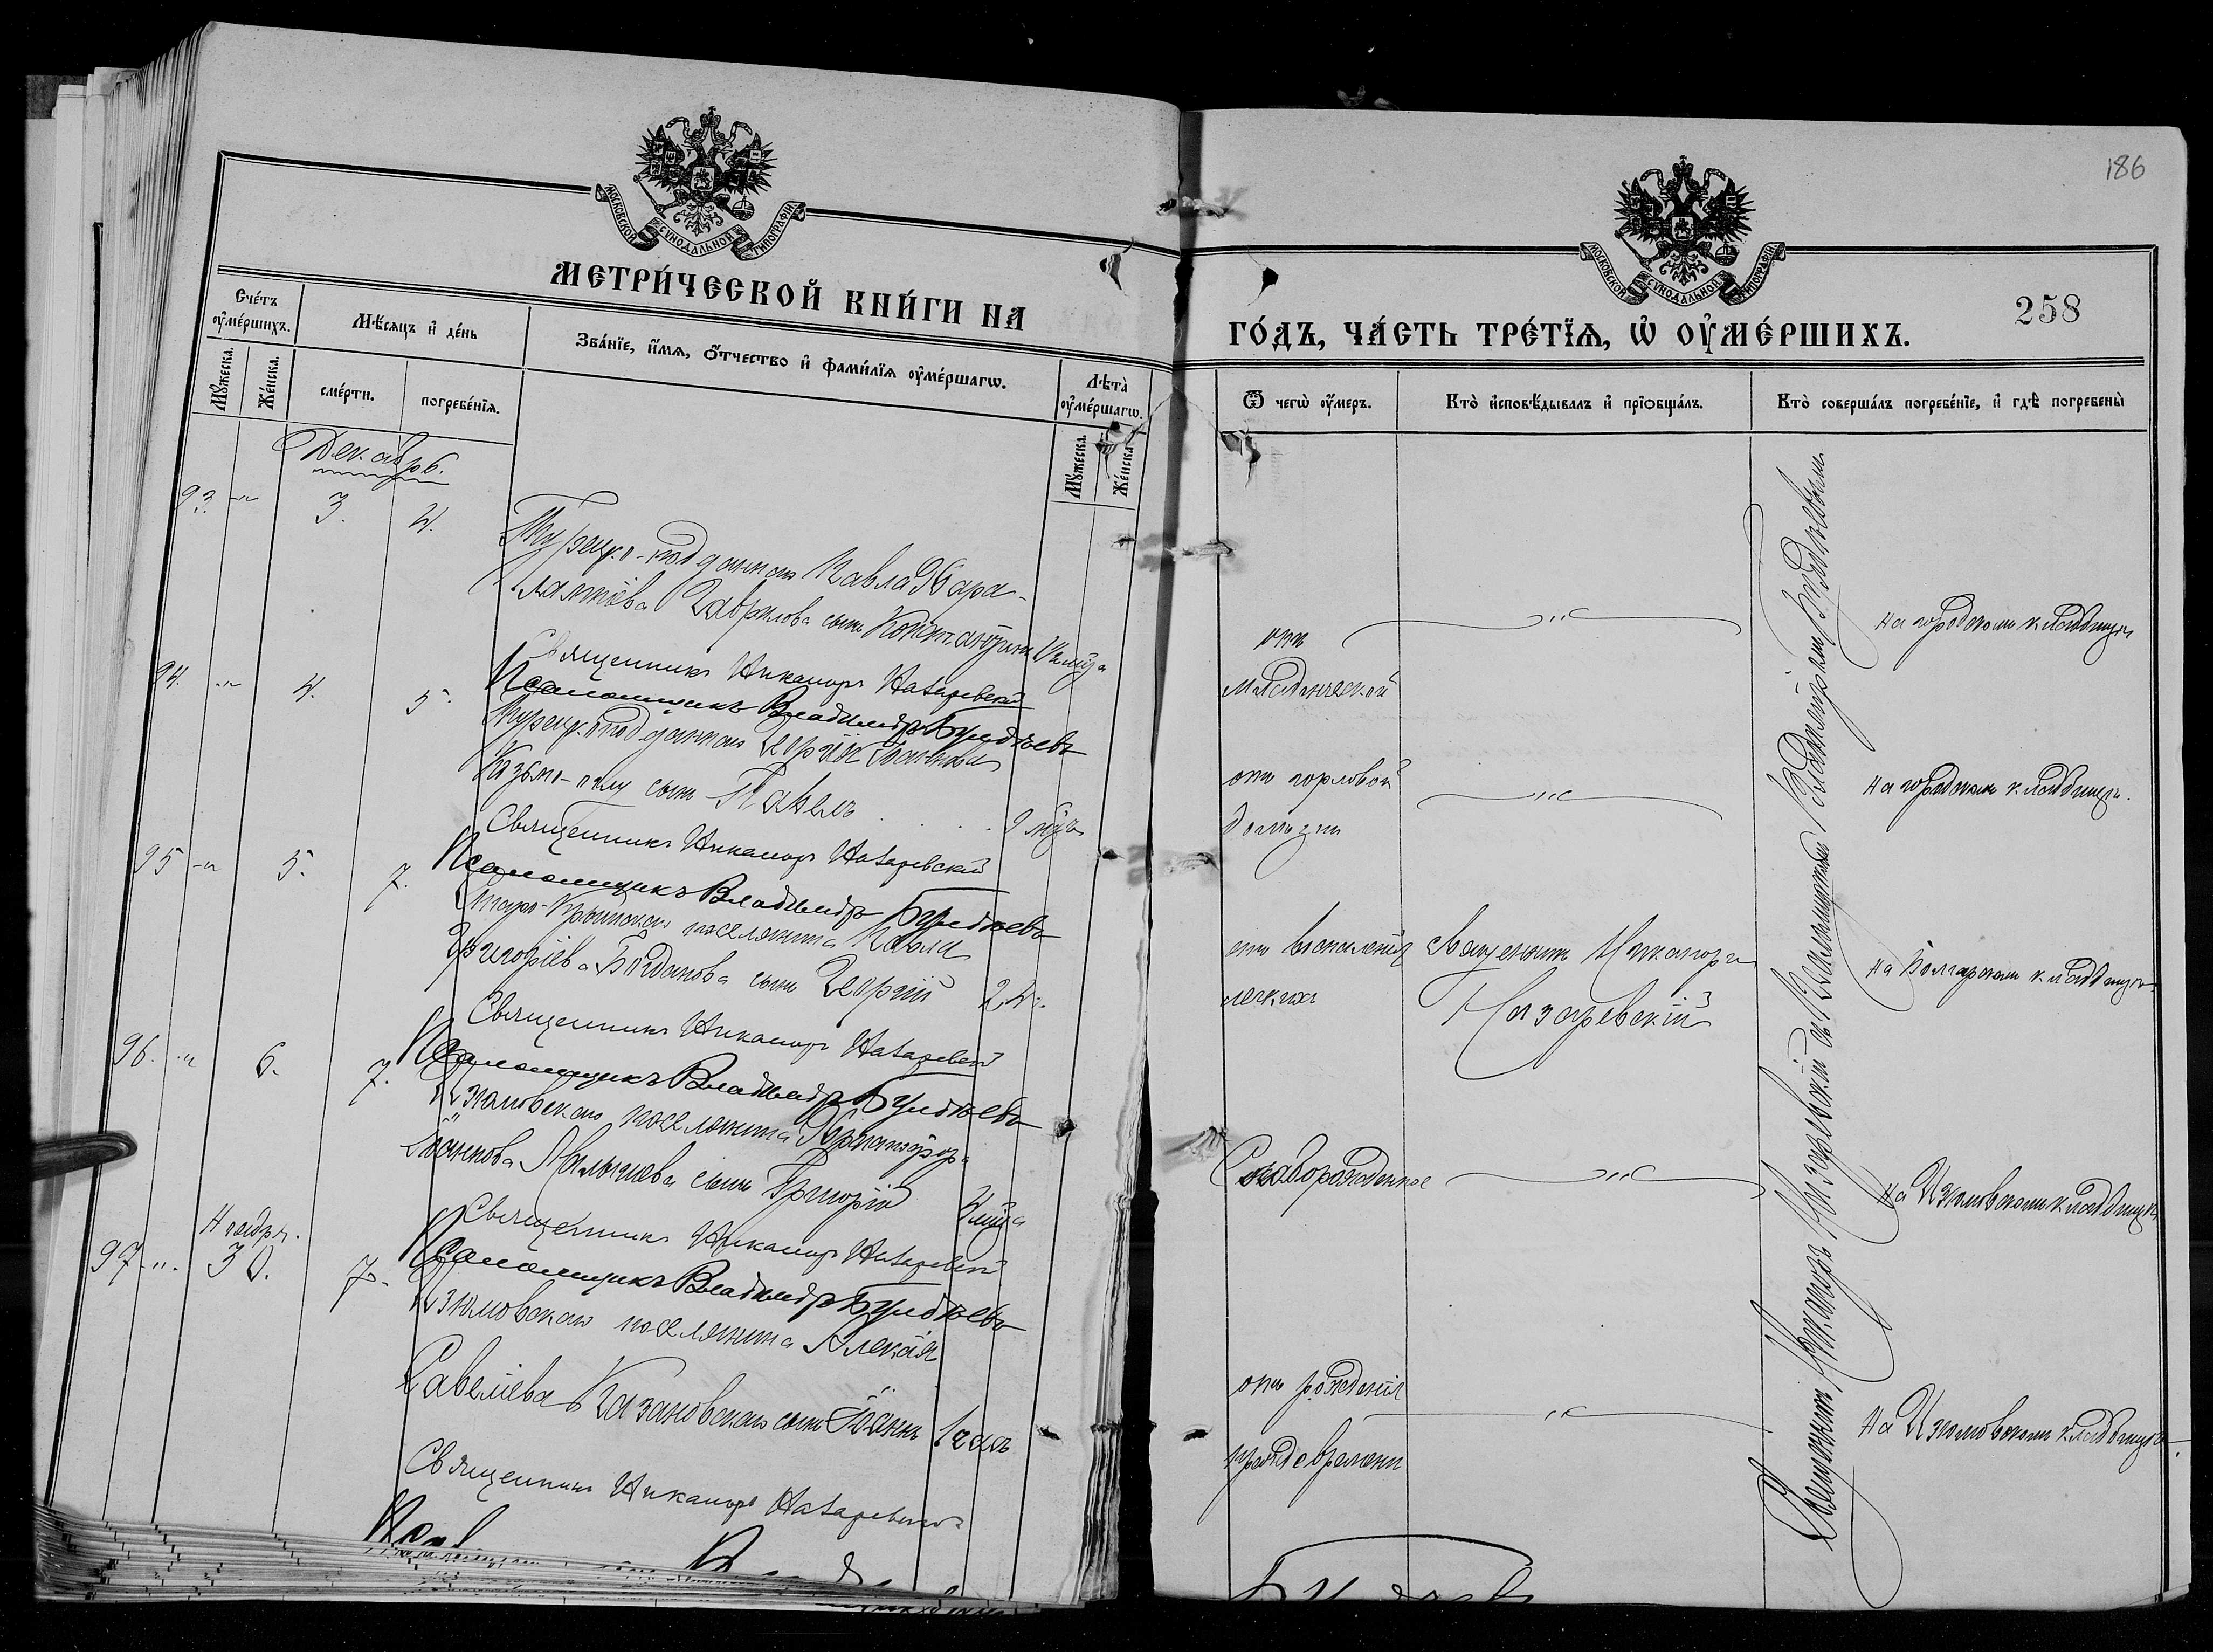 МОСКОВСКОЙ СѴНОДАЛЬНОЙ ТИПОГРАФІИ
МЕТРИ́ЧЕСКОЙ КНИ́ГИ НА
Сче́тъ оу҆ме́ршихъ.
Мѣ́сяцъ и҆ де́нь
Зва́нїе, и҆́мѧ, ѻ҆́тчество и҆ фами́лїѧ оу҆ме́ршагѡ.
Лѣта̀ оу҆ме́ршагѡ.
Мꙋ́жеска.
Же́нска.
сме́рти.
погребе́нїѧ.
Мꙋ́жеска.
Же́нска.
Декабрь.
93. -"- 3. 4.
Турецко-подданнаго Павла Хара-
лампіева Гаврилова сынъ Константинъ
Священникъ Никаноръ Назаревскій
Псаломщикъ Владиміръ
94. -"- 4. 5.
Турецко подданнаго Георгія Іоаннова
сынъ Павелъ
Священникъ Никаноръ Назаревскій
Псаломщикъ Владиміръ
95 -"- 5. 7.
Старо-Крымскаго поселянина Павла
Григоріева Богданова сынъ Георгій 2 г.
Священникъ Никаноръ Назаревскій
Псаломщикъ Владиміръ
96. -"- 6. 7.
Изюмовскаго поселянина
Іоаннова сынъ Григорій
Священникъ Никаноръ Назаревскій
Псаломщикъ Владиміръ
Ноября.
97 -"- 30. 7.
Изюмовскаго поселянина Алексія
Савеліева Казановскаго сынъ Іоаннъ 1 часъ
Священникъ Никаноръ Назаревскій
186
МОСКОВСКОЙ СѴНОДАЛЬНОЙ ТИПОГРАФІИ
258
ГО́ДЪ, ЧА́СТЬ ТРЕ́ТЇѦ, Ѡ҆ ОУ҆МЕ́РШИХЪ.
Ѿ чегѡ̀ оу҆́меръ.
Кто̀ и҆сповѣ́дывалъ и҆ прїѻбща́лъ.
Кто̀ соверша́лъ погребе́нїе, и҆ гдѣ̀ погребены̀
отъ
младенческой
на городскомъ кладбищѣ
отъ горловой
болѣзни
на городскомъ кладбищѣ.
отъ воспаленія
легкихъ
Священникъ Никаноръ
Назаревскій
на Болгарскомъ кладбищѣ
Слаборожденное
на Изюмовскомъ кладбищѣ
отъ рожденія
прежде времени
на Изюмовскомъ кладбищѣ.
Священникъ Никаноръ Назаревскій съ Псаломщикомъ Владиміромъ